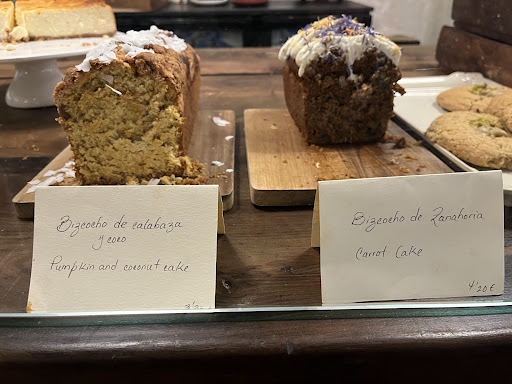 Bizcocho de calabaza
y coco
Pumpkin and coconut cake
Bizcocho de Zanahoria
Carrot Cake
4'20 €